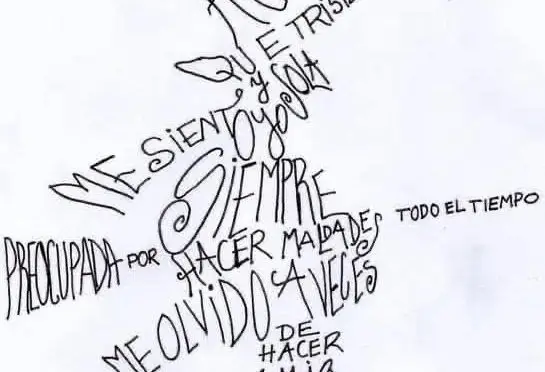 QUE
Y SOLA
ME SIENTO YO
SIEMPRE
PREOCUPADA POR HACER MALDADES TODO EL TIEMPO
ME OLVIDO A VECES
DE
HACER